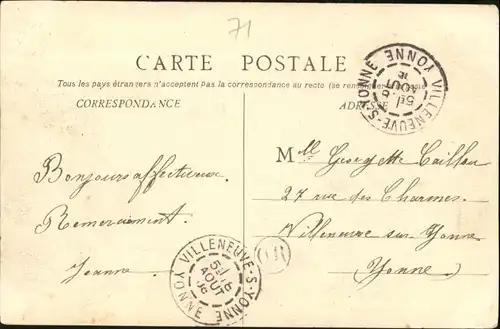 71
CARTE POSTALE
Tous les pays étrangers n'acceptent pas la correspondance au recto (se renseigner
CORRESPONDANCE
ADRESSE
VILLENEUVE-S-YONNE YONNE
AOUT
Mlle Georgette Caillau
27 rue des Charmes.
Villeneuve sur Yonne
Yonne
Bonjours affectueux.
Remerciement.
Jeanne
VILLENEUVE-S-YONNE YONNE
AOUT
06